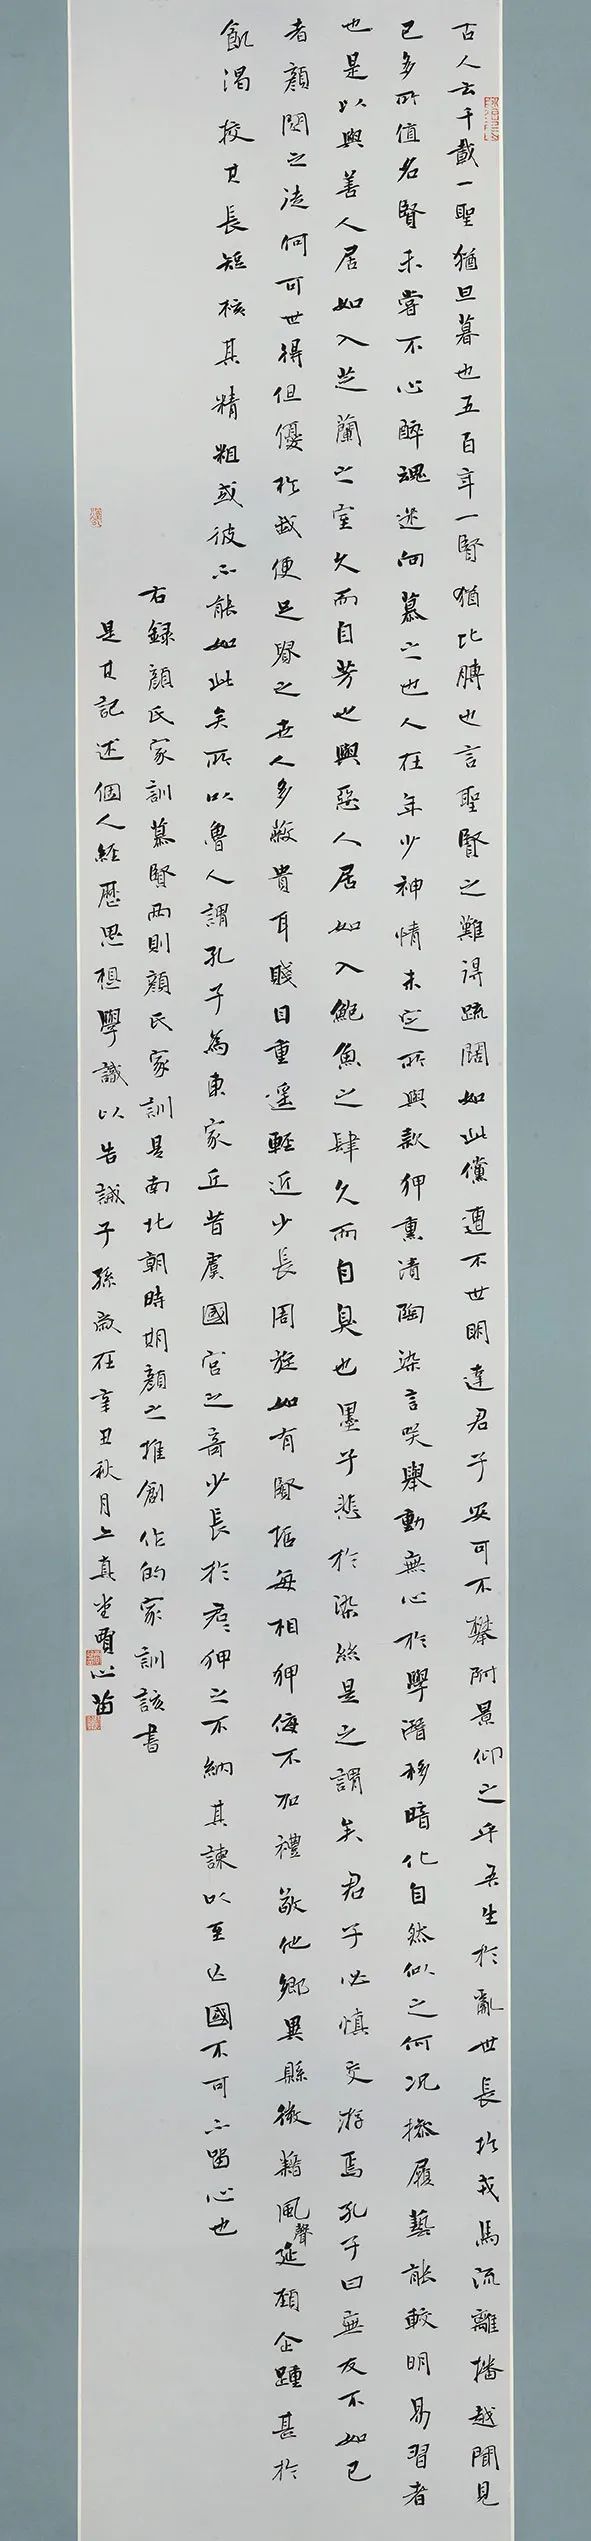 古人云千載一聖猶旦暮也五百年一賢猶比膊也言聖賢之難得疏闊如此儻遭不世明達君子安可不攀附景仰之乎吾生於亂世長於戎馬流離播越聞見
已多所值名賢未嘗不心醉魂迷向慕之也人在年少神情未定所與款狎熏漬陶染言笑舉動無心於學潛移暗化自然似之何況操履藝能較明易習者
也是以與善人居如入芝蘭之室久而自芳也與惡人居如入鮑魚之肆久而自臭也墨子悲於染絲是之謂矣君子必慎交游焉孔子曰無友不如己
者顏閔之徒何可世得但優於我便足貴之世人多蔽貴耳賤目重遙輕近少長周旋如有賢哲每相狎侮不加禮敬他鄉異縣微藉風聲延頸企踵甚於
飢渴校其長短核其精粗或彼不能如此矣所以魯人謂孔子為東家丘昔虞國宮之奇少長於君君狎之不納其諫以至亡國不可不留心也
右錄顏氏家訓慕賢兩則顏氏家訓是南北朝時期顏之推創作的家訓該書
是其記述個人經歷思想學識以告誡子孫歲在辛丑秋月上真堂賈心留